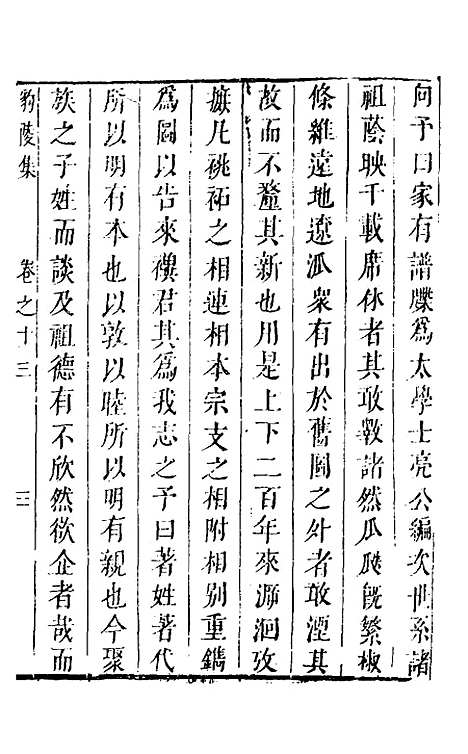 向予曰家有譜牒為太學士亮公編次世系諸
祖蔭映千載席休者其敢斁諸然瓜瓞旣繁椒
條維遠地遼派衆有出於舊圖之外者敢湮其
故而不釐其新也用是上下二百年來源洄攷
摭凡祧祏之相連相本宗支之相附相別重鐫
為圖以告來襈君其為我志之予曰著姓著代
所以明有本也以敦以睦所以明有親也今聚
族之子姓而談及祖德有不欣然欲企者哉而
豹陵集 卷之十三 三